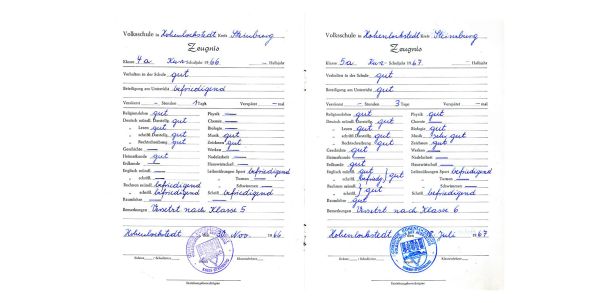 Volksschule in Hohenlockstedt Kreis Steinburg
Zeugnis
Klasse 4a Kurz-Schuljahr 1966 – Halbjahr
Verhalten in der Schule gut
Beteiligung am Unterricht befriedigend
Versäumt – Stunden 1 Tage Verspätet – mal
Religionslehre gut Physik —
Deutsch mündl. Darstellg. gut Chemie —
„ Lesen gut Biologie —
„ schriftl. Darstellg. gut Musik gut
„ Rechtschreibung gut Zeichnen gut
Geschichte — Werken
Heimatkunde gut Nadelarbeit —
Erdkunde — Hauswirtschaft —
Englisch mündl. — Leibesübungen Sport befriedigend
„ schriftl. — Turnen —
Rechnen mündl. befriedigend Schwimmen —
„ schriftl. befriedigend Schrift befriedigend
Raumlehre —
Bemerkungen Versetzt nach Klasse 5
Hohenlockstedt den 30. Nov. 1966
Erziehungsberechtigter
Volksschule in Hohenlockstedt Kreis Steinburg
Zeugnis
Klasse 5a Kurz-Schuljahr 1967 – Halbjahr
Verhalten in der Schule gut
Beteiligung am Unterricht gut
Versäumt – Stunden 3 Tage Verspätet – mal
Religionslehre gut Physik —
Deutsch mündl. Darstellg. gut Chemie —
„ Lesen gut Biologie gut
„ schriftl. Darstellg. gut Musik sehr gut
„ Rechtschreibung gut Zeichnen gut
Geschichte gut Werken —
Heimatkunde — Nadelarbeit —
Erdkunde gut Hauswirtschaft —
Englisch mündl. gut } gut Leibesübungen Sport befriedigend
„ schriftl. befriedg. Turnen —
Rechnen mündl. } gut Schwimmen —
„ schriftl. Schrift gut
Raumlehre gut
Bemerkungen Versetzt nach Klasse 6
Hohenlockstedt Juli 1967
Erziehungsberechtigter